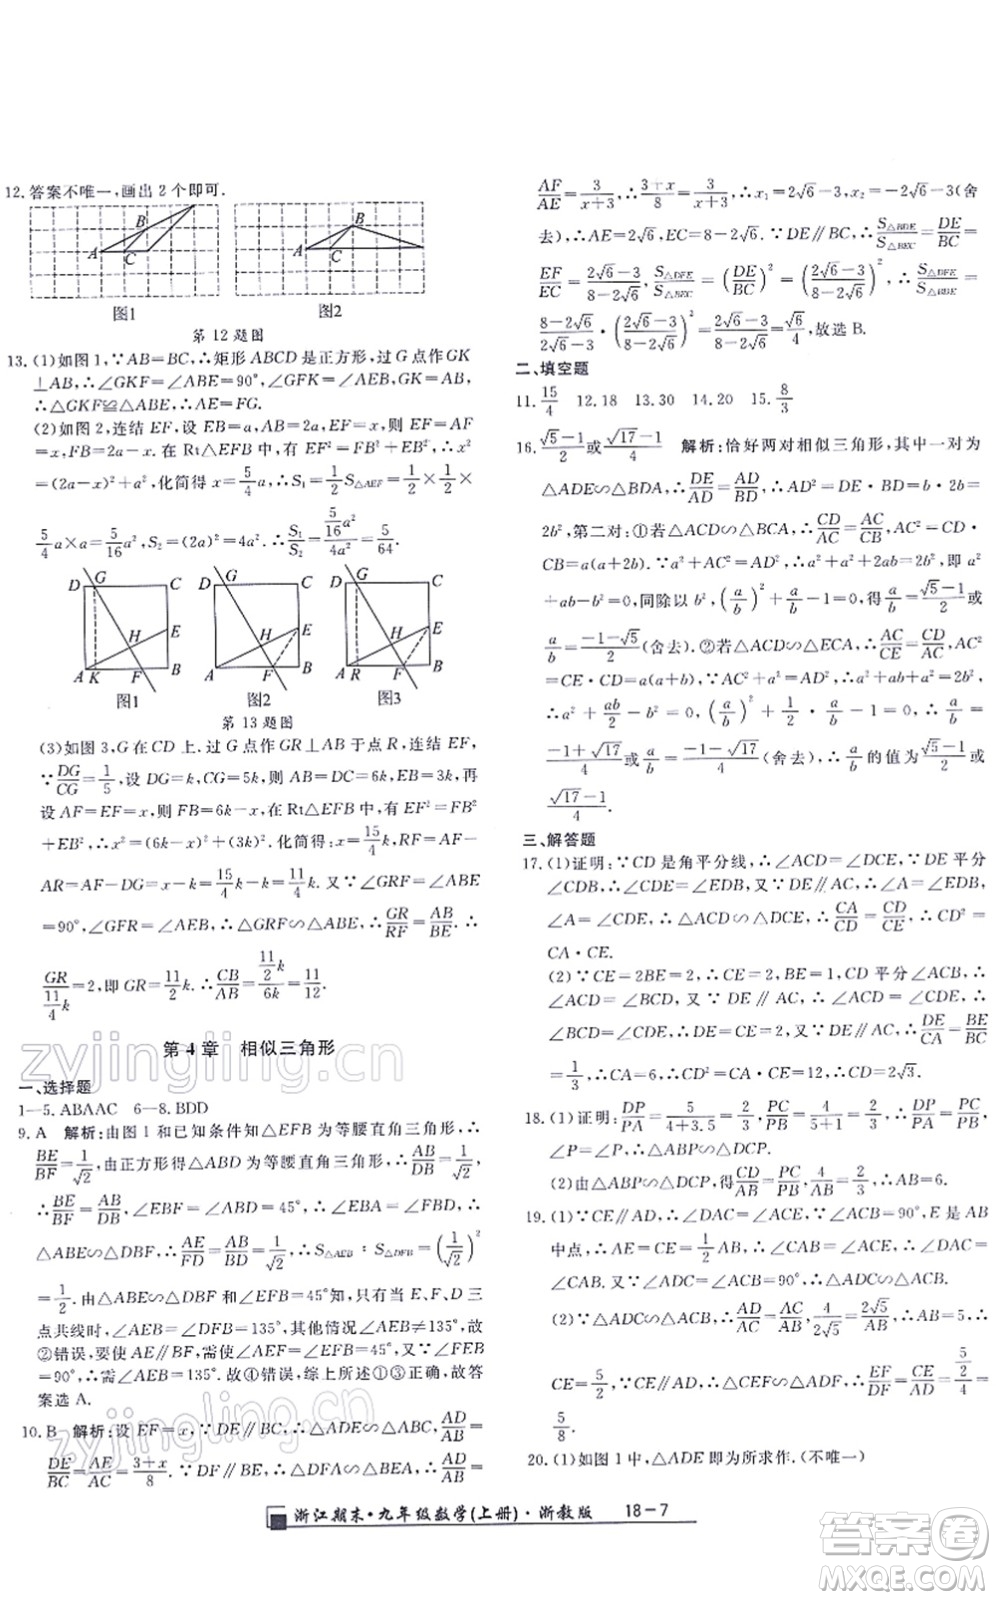 12.答案不唯一,画出2个即可.
A B C
A B
图1 图2
第12题图
13.(1)如图1,∵AB=BC,∴矩形ABCD是正方形,过G点作GK
⊥AB,∴∠GKF=∠ABE=90°,∠GFK=∠AEB,GK=AB,
∴△GKF≌△ABE,∴AE=FG.
(2)如图2,连结EF,设EB=a,AB=2a,AF=x,则EF=AF
=x,FB=2a-x.在Rt△EFB中,有EF²=FB²+EB²,∴x²
=(2a-x)²+a²,化简得x=5/4a,∴S₁=1/2S△AEF=1/2×1/2×
5/4a×a=5/16a²,S₂=(2a)²=4a²,∴S₁/S₂=(5/16a²)/(4a²)=5/64.
D G C D G C D G C
H E H E H E
A K F B A F B A R F B
图1 图2 图3
第13题图
(3)如图3,G在CD上.过G点作GR⊥AB于点R,连结EF,
∵DG/CG=1/5,设DG=k,CG=5k,则AB=DC=6k,BE=3k,再
设AF=EF=x,则FB=6k-x,在Rt△EFB中,有EF²=FB²
+EB²,∴x²=(6k-x)²+(3k)².化简得:x=15/4k,RF=AF-
AR=AF-DG=15/4k-k=11/4k.又∵∠GRF=∠ABE
=90°,∠GFR=∠AEB,∴△GRF∽△ABE,∴GR/RF=AB/BE.∴
GR/(11/4k)=2,即GR=11/2k.∴CB/AB=(11/2k)/(6k)=11/12.
第4章 相似三角形
一、选择题
1—5.ABAAC 6—8.BDD
9.A 解析:由图1和已知条件知△EFB为等腰直角三角形,∴
BE/BF=1/√2,由正方形得△ABD为等腰直角三角形,∴AB/DB=1/√2,
∴BE/BF=AB/DB,∠EBF=∠ABD=45°,∴∠EBA=∠FBD,∴
△ABE∽△DBF,∴AE/FD=AB/BD=1/√2,∴S△AEB:S△DFB=(1/√2)²
=1/2.由△ABE∽△DBF和∠EFB=45°知,只有当E、F、D三
点共线时,∠AEB=∠DFB=135°,其他情况∠AEB≠135°,故
②错误,要使∠AEB=135°-∠EBF=
=90°,∠EFB=45°.故④错误,综上所述①③正确,故答
案选A.
10.B 解析:设EF=x,∵DE∥BC,∴△ADE∽△ABC,AD/AB=
DE/BC=AE/AC=(3+x)/8.∵DF∥BE,∴△ADF∽△ABE,∴AD/AB=
AF/AE=3/(x+3),∴3/(x+3)=(3+x)/8,∴x₁=2√6-3,x₂=-2√6-3(舍
去),∴AE=2√6,EC=8-2√6.∵DE∥BC,∴S△BDE/S△BEC=DE/BC=
EF/EC=(2√6-3)/(8-2√6),∵S△DFE/S△BEC=(DE/BC)²=((2√6-3)/(8-2√6))²,∴S△DFE/S△BBE=
(8-2√6)/(2√6-3)·((2√6-3)/(8-2√6))²=(2√6-3)/(8-2√6)=√6/4,故选B.
二、填空题
11.15/4 12.18 13.30 14.20 15.8/3
16.(√5-1)/2或(√17-1)/4 解析:恰好两对相似三角形,其中一对为
△ADE∽△BDA,∴DE/AD=AD/BD,∴AD²=DE·BD=b·2b=
2b²,第二对:①若△ACD∽△BCA,∴CD/AC=AC/CB,AC²=CD·
CB=a(a+2b).∵a²+AD²=AC²,∴a²+2b²=a²+2ab,即a²
+ab-b²=0,同除以b²,(a/b)²+a/b-1=0,得a/b=(√5-1)/2或
a/b=(-1-√5)/2(舍去).②若△ACD∽△ECA,∴AC/CE=CD/AC,AC²
=CE·CD=a(a+b).∵AC²=AD²+CD²,∴a(a+b)=a²+2b²,
∴a²+ab/2-b²=0,(a/b)²+1/2·a/b-1=0,∴a/b=
(-1+√17)/4或a/b=(-1-√17)/4(舍去),∴a/b的值为(√5-1)/2或
(√17-1)/4.
三、解答题
17.(1)证明:∵CD是角平分线,∴∠ACD=∠DCE,∵DE平分
∠CDB,∴∠CDE=∠EDB,又∵DE∥AC,∴∠A=∠EDB,
∠A=∠CDE,∴△ACD∽△DCE,∴CA/CD=CD/CE,∴CD²=
CA·CE.
(2)∵CE=2BE=2,∴CB=3,∵CD平分∠ACB,∴
∠ACD=∠BCD,又∵DE∥AC,∴CE=DE,∴DE/CA=BE/BC
=1/3,∴CA=6,∴CD²=CA·CE=12,∴CD=2√3.
18.(1)证明:DP/PA=5/(4+3.5)=2/3,PC/PB=4/(5+1)=2/3,∴DP/PA=PC/PB,
∠P=∠P,∴△ABP∽△DCP.
(2)由△ABP∽△DCP,得CD/AB=PC/PB=4/6=2/3,∴AB=6.
19.(1)∵CE∥AD,∴∠DAC=∠ACE,∵∠ACB=90°,E是AB
中点,∴AE=CE=1/2AB,∴∠EAC=∠ACE,∴∠DAC=
∠CAB.又∵∠ADC=∠ACB=90°,∴△ADC∽△ACB.
(2)∵△ADC∽△ACB,∴AD/AC=AC/AB,4/2√5=2√5/AB,∴AB=5,∴
CE=5/2,∵CE∥AD,∴△CEF∽△ADF,∴EF/DF=CE/AD=(5/2)/4=
5/8.
20.(1)如图1中,△ADE即为所求作.(不唯一)
浙江期末·九年级数学(上册)·浙教版 18-7
zyjingling.com
zyjingling.com
答案圈
MXQE.COM